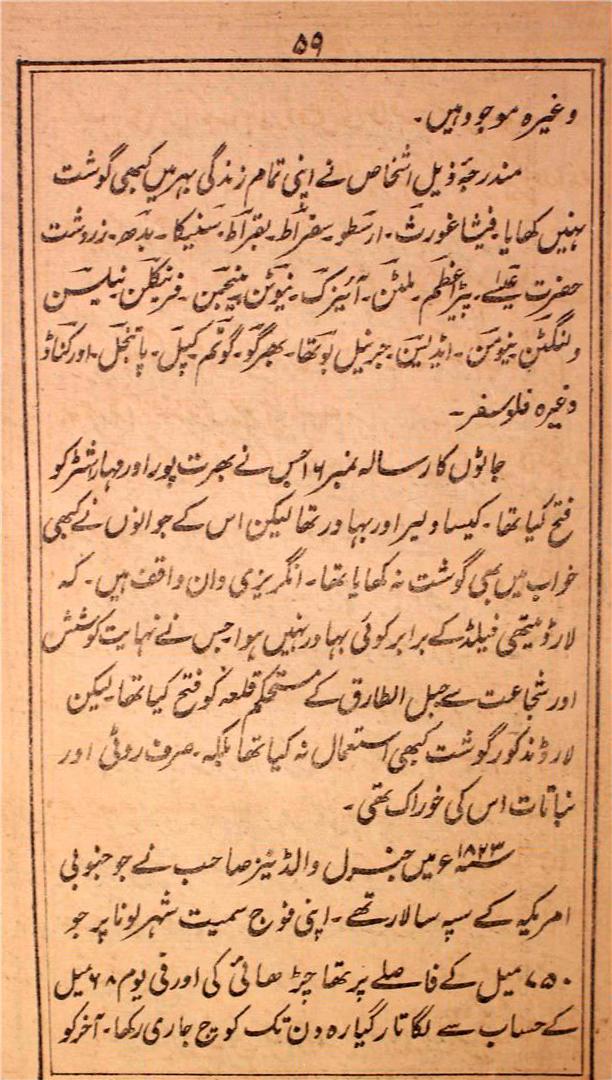 ۵۹
وغیرہ موجود ہیں۔
مندرجہ ذیل اشخاص نے اپنی تمام زندگی بہر میں کبھی گوشت
نہیں کھایا۔ فیثا غورث۔ ارسطو۔ سقراط۔ بقراط۔ سنیکا۔ بدھ۔ زردشت
حضرت عیسے۔ پٹر اعظم۔ ملٹن۔ آئیزک۔ نیوٹن۔ بینجمن۔ فرینکلن۔ نیلسن
ولنگٹن۔ نیومن۔ اڈیسن۔ جرنیل بوتھا۔ بھرگو۔ گوتم۔ کپل۔ پاتنجل۔ اور کناڈ
وغیرہ فلوسفر۔
جاٹوں کا رسالہ نمبر ۱۶ جس نے بھرت پور اور مہاراشٹر کو
فتح کیا تھا۔ کیسا دلیر اور بہادر تھا لیکن اس کے جوانوں نے کبھی
خواب میں بھی گوشت نہ کھایا تھا۔ انگریزی دان واقف ہیں۔ کہ
لارڈ ہیتھی فیلڈ کے برابر کوئی بہادر نہیں ہوا جس نے نہایت کوشش
اور شجاعت سے جبل الطارق کے مستحکم قلعہ کو فتح کیا تھا۔ لیکن
لارڈ مذکور گوشت کبھی استعمال نہ کیا تھا بلکہ۔ صرف روٹی اور
نباتات اس کی خوراک تھی۔
۱۸۲۳ء میں جنرل والڈینز صاحب نے جو جنوبی
امریکہ کے سپہ سالار تھے۔ اپنی فوج سمیت شہر لونا پر جو
۷۵۰ میل کے فاصلے پر تھا چڑھائی کی اور فی یوم ۶۸ میل
کے حساب سے لگاتار گیارہ دن تک کوچ جاری رکھا۔ آخر کو